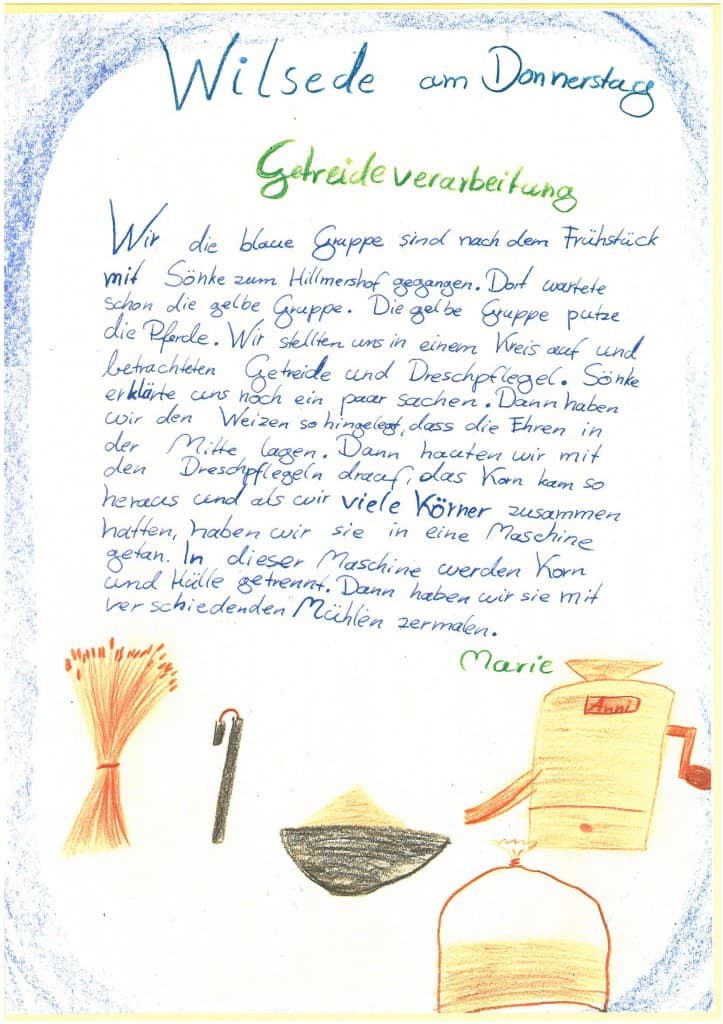 Wilsede am Donnerstag
Getreideverarbeitung
Wir die blaue Gruppe sind nach dem Frühstück
mit Sönke zum Hillmershof gegangen. Dort wartete
schon die gelbe Gruppe. Die gelbe Gruppe putze
die Pferde. Wir stellten uns in einem Kreis auf und
betrachteten Getreide und Dreschpflegel. Sönke
erklärte uns noch ein paar sachen. Dann haben
wir den Weizen so hingelegt, dass die Ehren in
der Mitte lagen. Dann hauten wir mit
den Dreschpflegeln drauf, das Korn kam so
heraus und als wir viele Körner zusammen
hatten, haben wir sie in eine Maschine
getan. In dieser Maschine werden Korn
und Hülle getrennt. Dann haben wir sie mit
verschiedenden Mühlen zermalen.
Marie
Anni